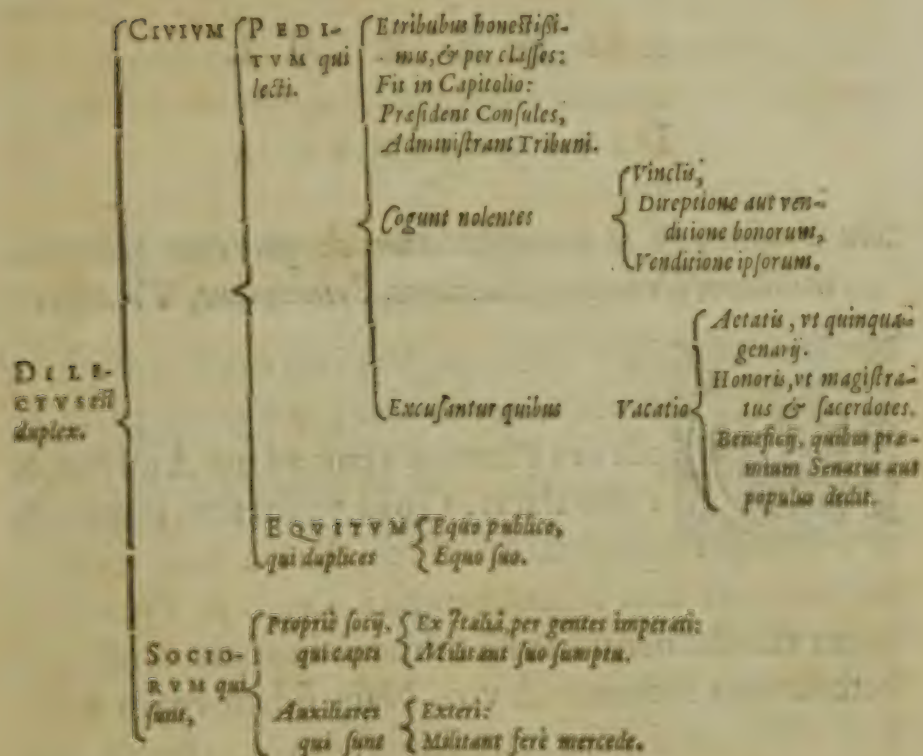 DILE-
CTVS est
duplex.
CIVIVM
PEDI-
TVM qui
lecti.
E tribubus honestißi-
mus, & per classes:
Fit in Capitolio:
Præsident Consules,
Administrant Tribuni.
Cogunt nolentes
Vinclis,
Direptione aut ven-
ditione bonorum,
Venditione ipsorum.
Excusantur quibus
Vacatio
Aetatis, vt quinqua-
genarij.
Honoris, vt magistra-
tus & sacerdotes.
Beneficij, quibus præ-
mium Senatus aut
populus dedit.
EQVITVM
qui duplices
Equo publico,
Equo suo.
SOCIO-
RVM qui
sunt,
Propriè socij.
qui capti
Ex Italiâ, per gentes imperati:
Militant suo sumptu.
Auxiliares
qui sunt
Exteri:
Militant ferè mercede.